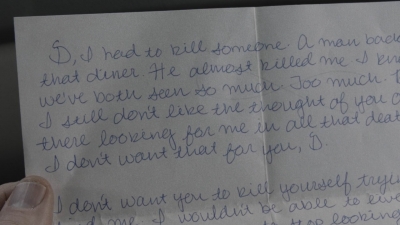 D, I had to kill someone. A man back
that diner. He almost killed me I kn
we've both seen so much. Too much.
I still don't like the thought of you
there looking for me in all that deat
I don't want that for you, D.
I don't want you to kill yourself tryi
me. I wouldn't be able to
looking